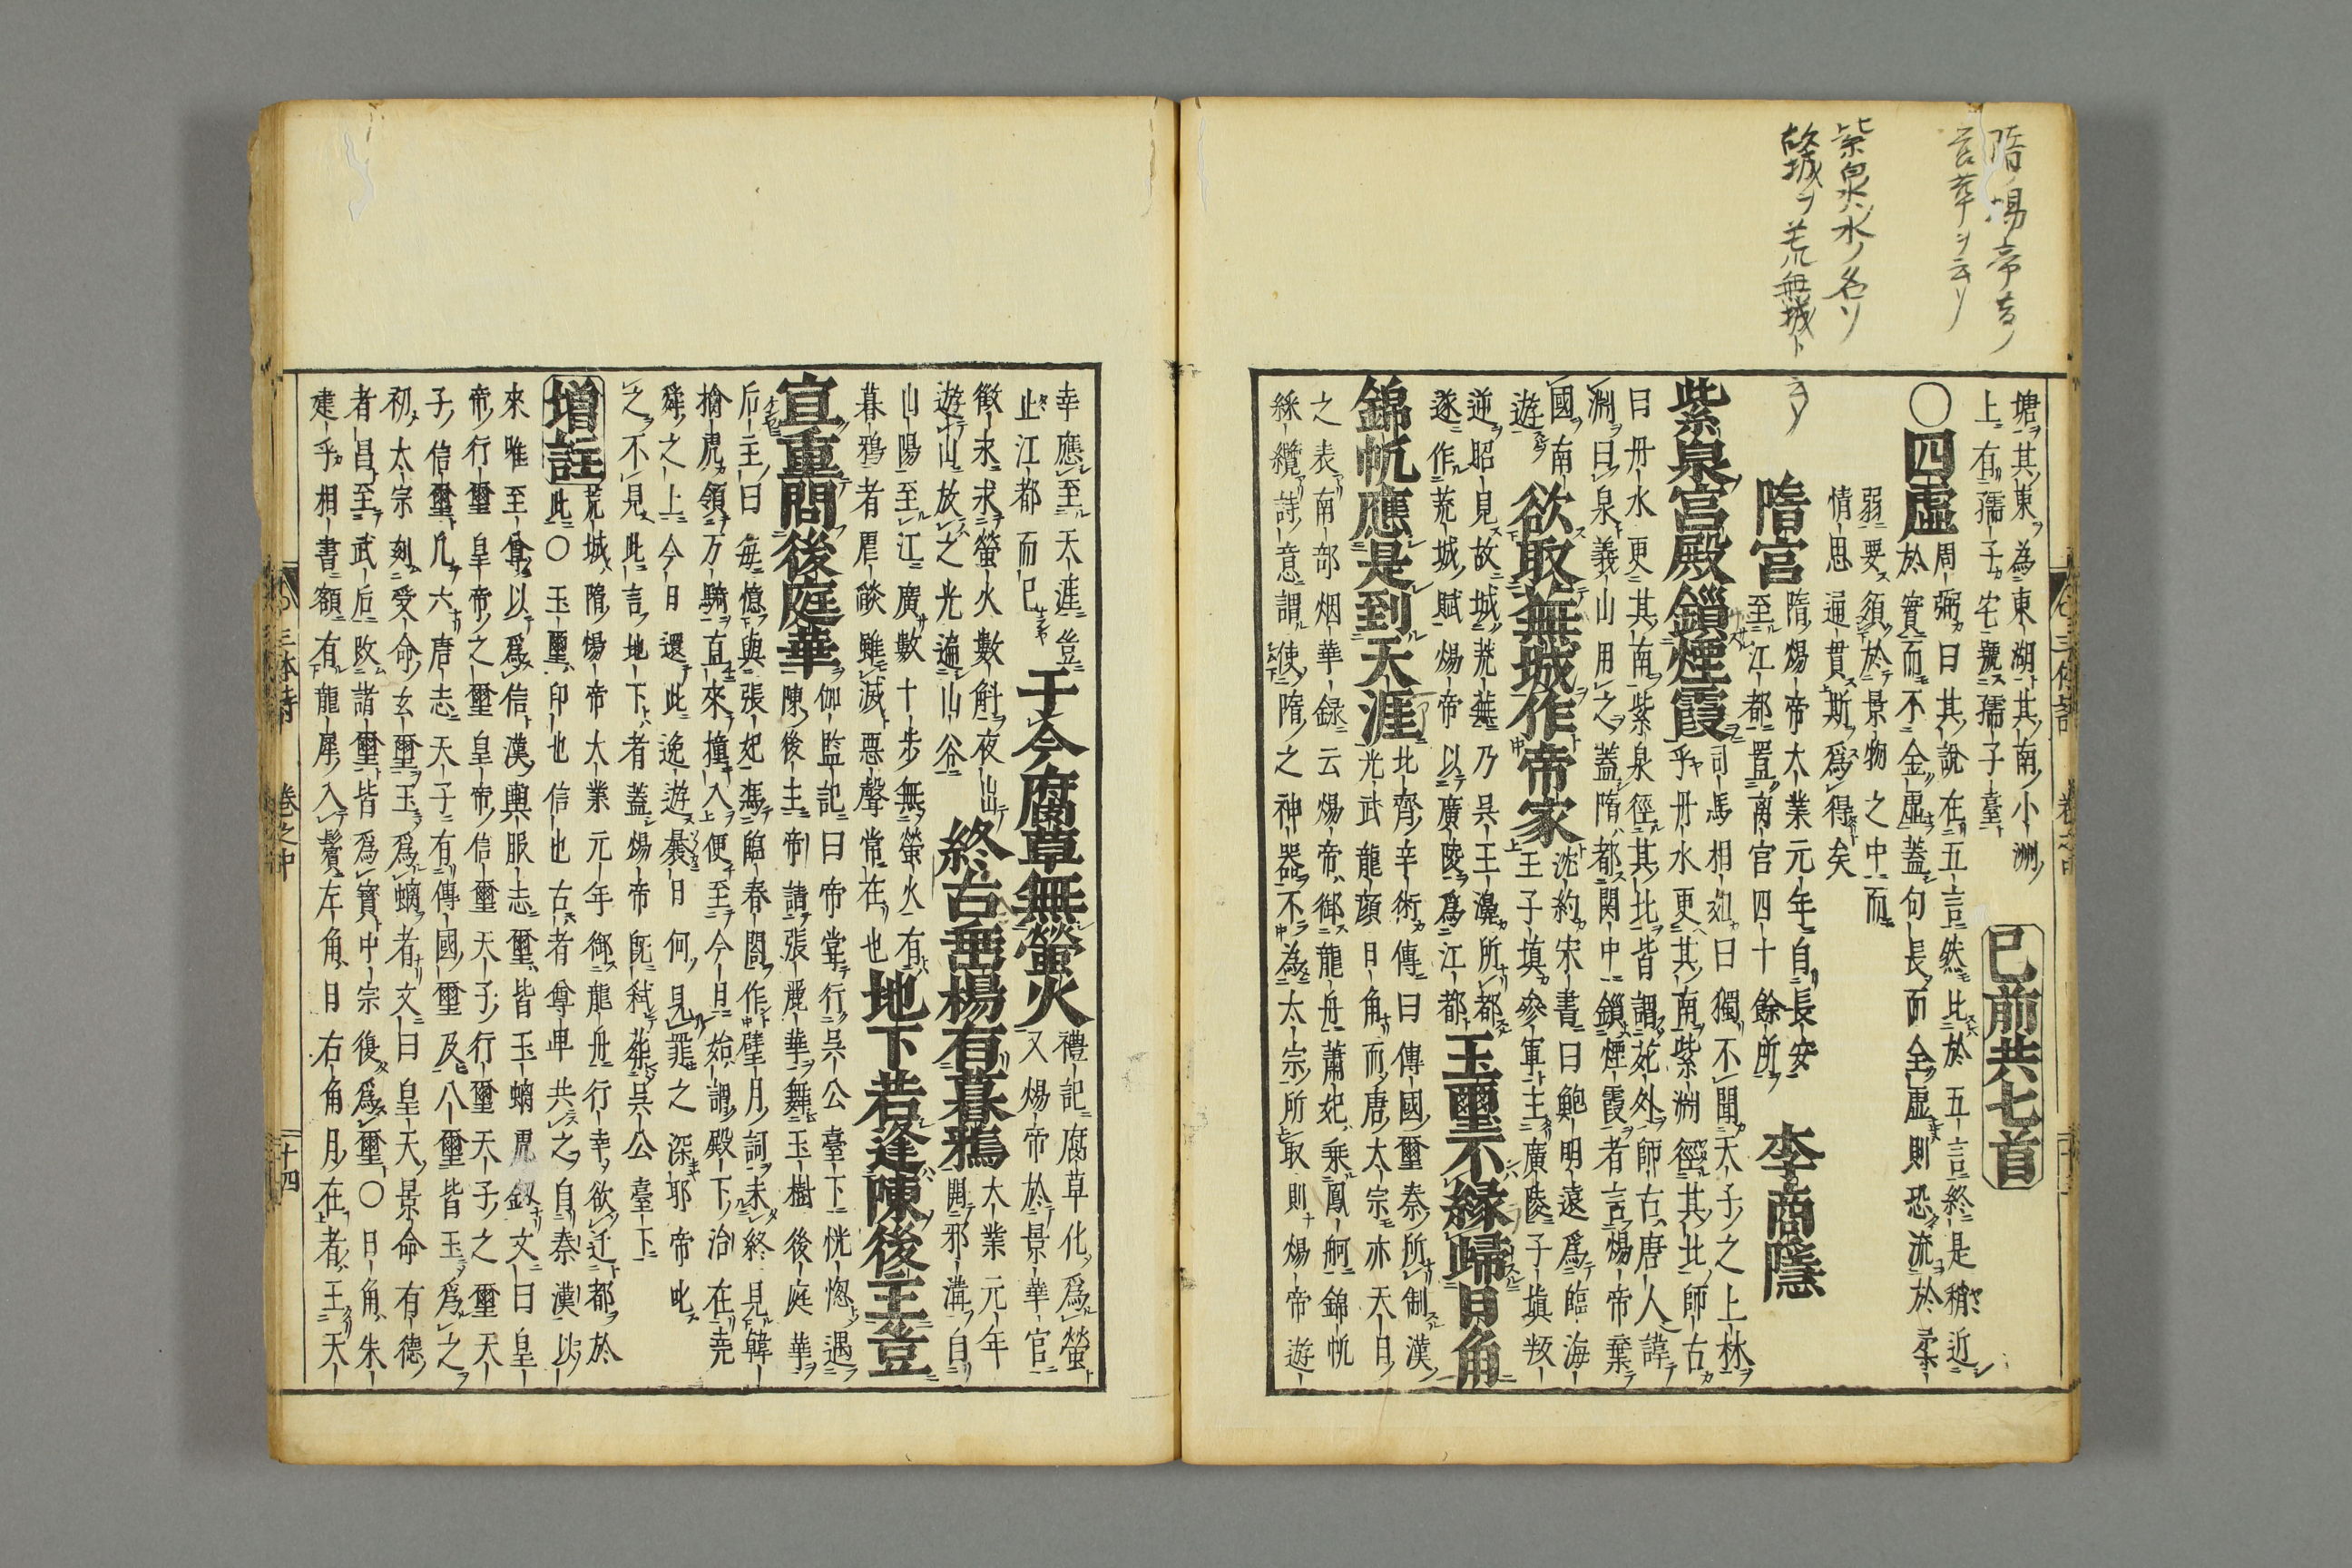 隋ノ煬帝ノ
紫泉ハ水ノ名ソ
故城ヲ荒無城ト
云フ
塘其東為東湖其南小洲
上有孺子宅號孺子臺 已前共七首
〇四虛 周弼曰其說在五言然比於五言終是稍近
於實而不全虛蓋句長而全虛則恐流於柔
弱要須於景物之中而
情思通貫斯爲得矣
隋宮 隋煬帝大業元年自長安
至江都置离宮四十餘所 李商隱
紫泉宮殿鎖煙霞 司馬相如曰獨不聞天子之上林
乎丹水更其南紫淵徑其北師古
曰丹水更其南紫泉徑其北皆謂苑外師古唐人諱
淵曰泉義山用之蓋隋都関中鎖煙霞者言煬帝棄
國南
遊 欲取蕪城作帝家 沈約宋書曰鮑明遠爲臨海
王子填參軍主廣陵子填叛
逆昭見故城荒蕪乃吳王濞所都
遂作蕪城賦煬帝以廣陵爲江都 玉璽不緣歸日角
北齊辛術傳曰傳國璽秦所制漢
光武龍顏日角而唐太宗亦天日
之表 錦帆應是到天涯
南部烟華録云煬帝御龍舟蕭妃乘鳳舸錦帆
綵纜詩意謂使隋之神器不為太宗所取則煬帝遊
幸應至天涯豈
止江都而已 于今腐草無螢火 禮記腐草化爲螢
又煬帝於景華宮
徴求求螢火數斛夜出
遊山放之光遍山谷 終古垂楊有暮鴉 大業元年
開邗溝自
山陽至江廣數十步無螢火有
暮鴉者眉談雖滅惡聲常在也 地下若逢陳後主豈
宜重問後庭華 伽監記曰帝嘗行吳公臺下恍惚遇
陳後主帝請張麗華舞玉樹後庭華
后主曰每憶與張妃凭臨春閣作璧月詞未終見韓
擒虎領万騎直來撞入便至今日始謂殿下治在堯
舜之上今日還此逸遊曩日何見罪之深耶帝叱
之不見此言地下者蓋煬帝既弑葬吳公臺下
增註 荒城隋煬帝大業元年御龍舟行幸欲迁都於
此〇玉璽印也信也古者尊卑共之自秦漢以
來唯至尊以爲信漢輿服志璽皆玉螭虎鈕文曰皇
帝行璽皇帝之璽皇帝信璽天子行璽天子之璽天
子信璽凡六唐志天子有傳國璽及八璽皆玉爲之
初太宗刻受命玄璽玉爲螭者文曰皇天景命有德
者昌至武后改諸璽皆爲寶中宗後爲璽〇日角朱
建乎相書額有龍犀入鬢左角日右角月在者王天
三体詩 卷之中 十四